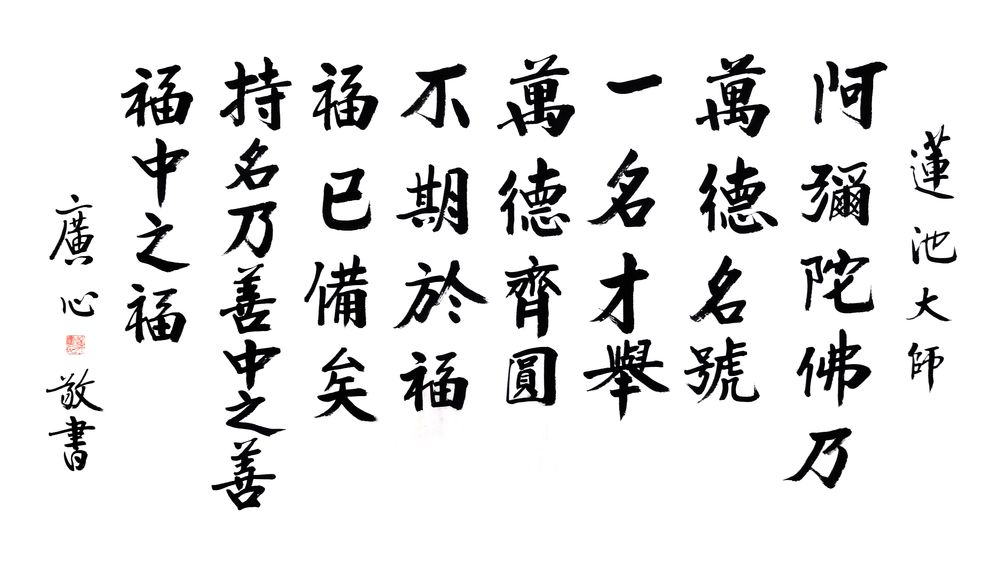 蓮池大師
阿彌陀佛乃
萬德名號
一名才舉
萬德齊圓
不期於福
福已備矣
持名乃善中之善
福中之福
廣心 敬書